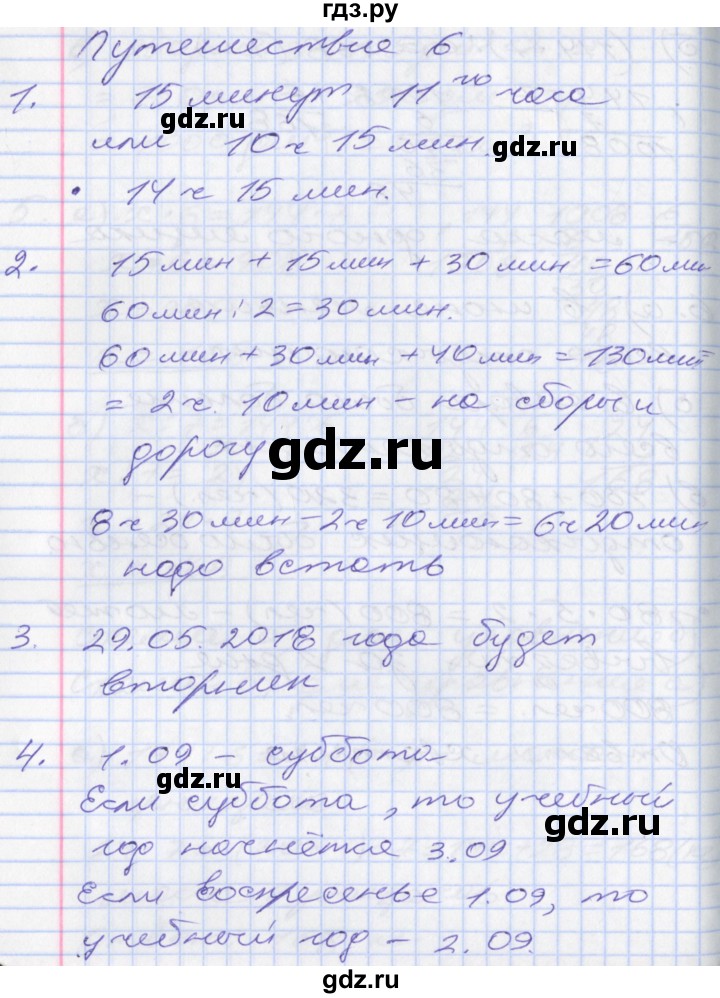 гдз.ру
Путешествие 6
1. 15 минут 11го часа
gdz.ru
gdz.ru
или 10 ч 15 мин.
• 14 ч 15 мин.
2. 15 мин + 15 мин + 30 мин = 60 мин
60 мин : 2 = 30 мин.
60 мин + 30 мин + 40 мин = 130 мин =
= 2 ч. 10 мин – на сборы и
дорогу
gdz.ru
8 ч 30 мин – 2 ч 10 мин = 6 ч 20 мин
надо встать
3. 29.05.2018 года будет
gdz.ru
вторник
4. 1.09 – суббота
gdz.ru
Если суббота, то учебный
gdz.ru
год начнётся 3.09
Если воскресенье 1.09, то
gdz.ru
учебный год – 2.09.
gdz.ru